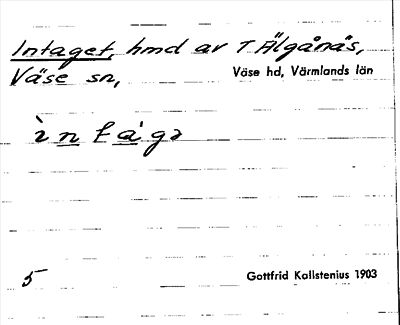 Intaget, hmd av T Älgånäs,
Väse sn,
Väse hd, Värmlands län
ìn tàgə
5
Gottfrid Kallstenius 1903